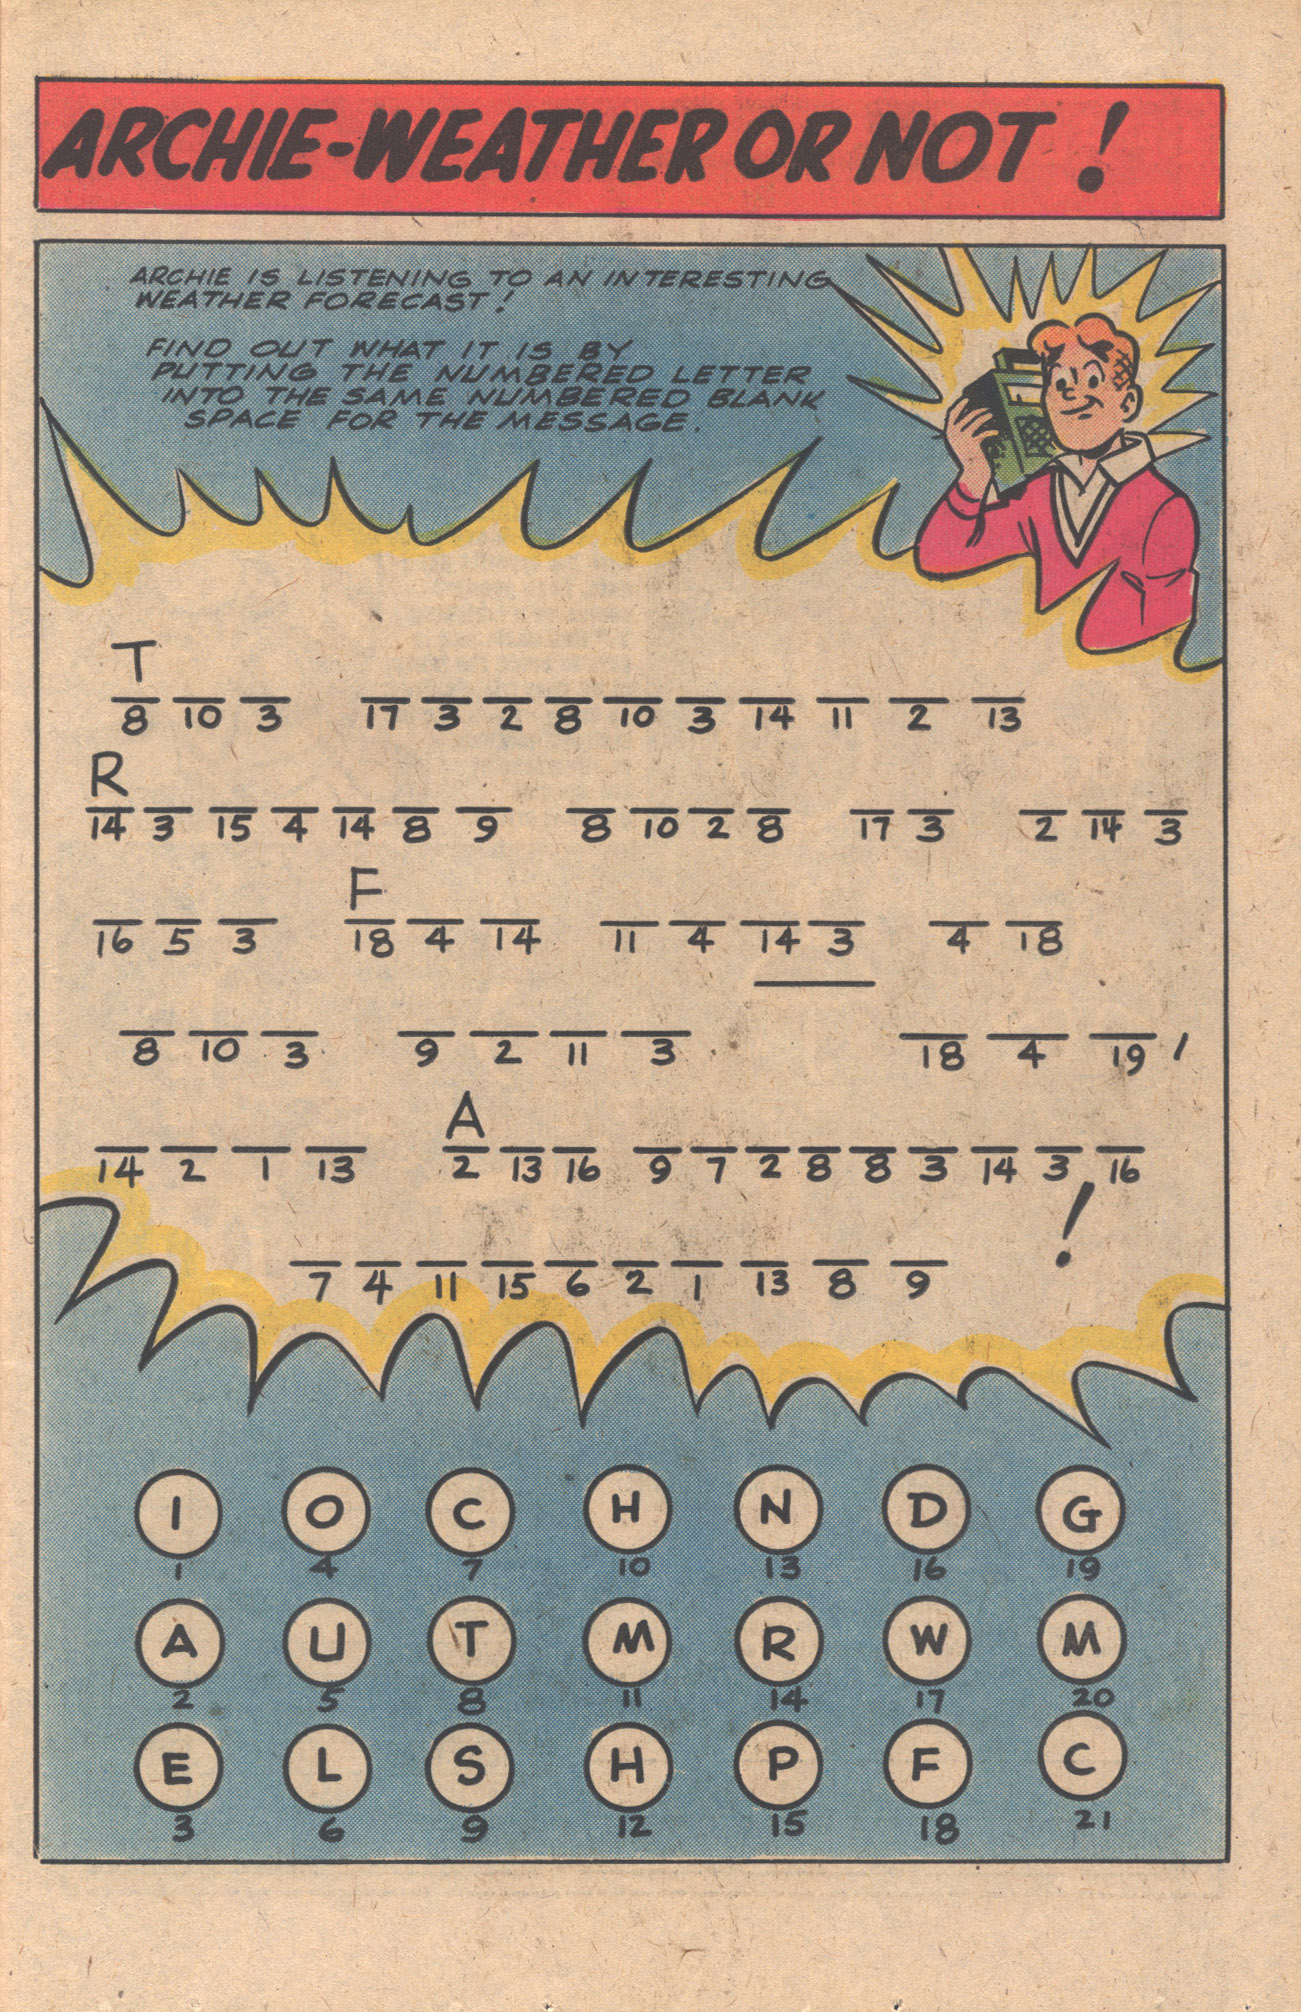 ARCHIE-WEATHER OR NOT!
ARCHIE IS LISTENING TO AN INTERESTING
WEATHER FORECAST!
FIND OUT WHAT IT IS BY
PUTTING THE NUMBERED LETTER
INTO THE SAME NUMBERED BLANK
SPACE FOR THE MESSAGE.
T
8 10 3 17 3 2 8 10 3 14 11 2 13
R
14 3 15 4 14 8 9 8 10 2 8 17 3 2 14 3
F
16 5 3 18 4 14 11 4 14 3 4 18
8 10 3 9 2 11 3 18 4 19,
A
14 2 1 13 2 13 16 9 7 2 8 8 3 14 3 16
7 4 11 15 6 2 1 13 8 9 !
I O C H N D G
1 4 7 10 13 16 19
A U T M R W M
2 5 8 11 14 17 20
E L S H P F C
3 6 9 12 15 18 21